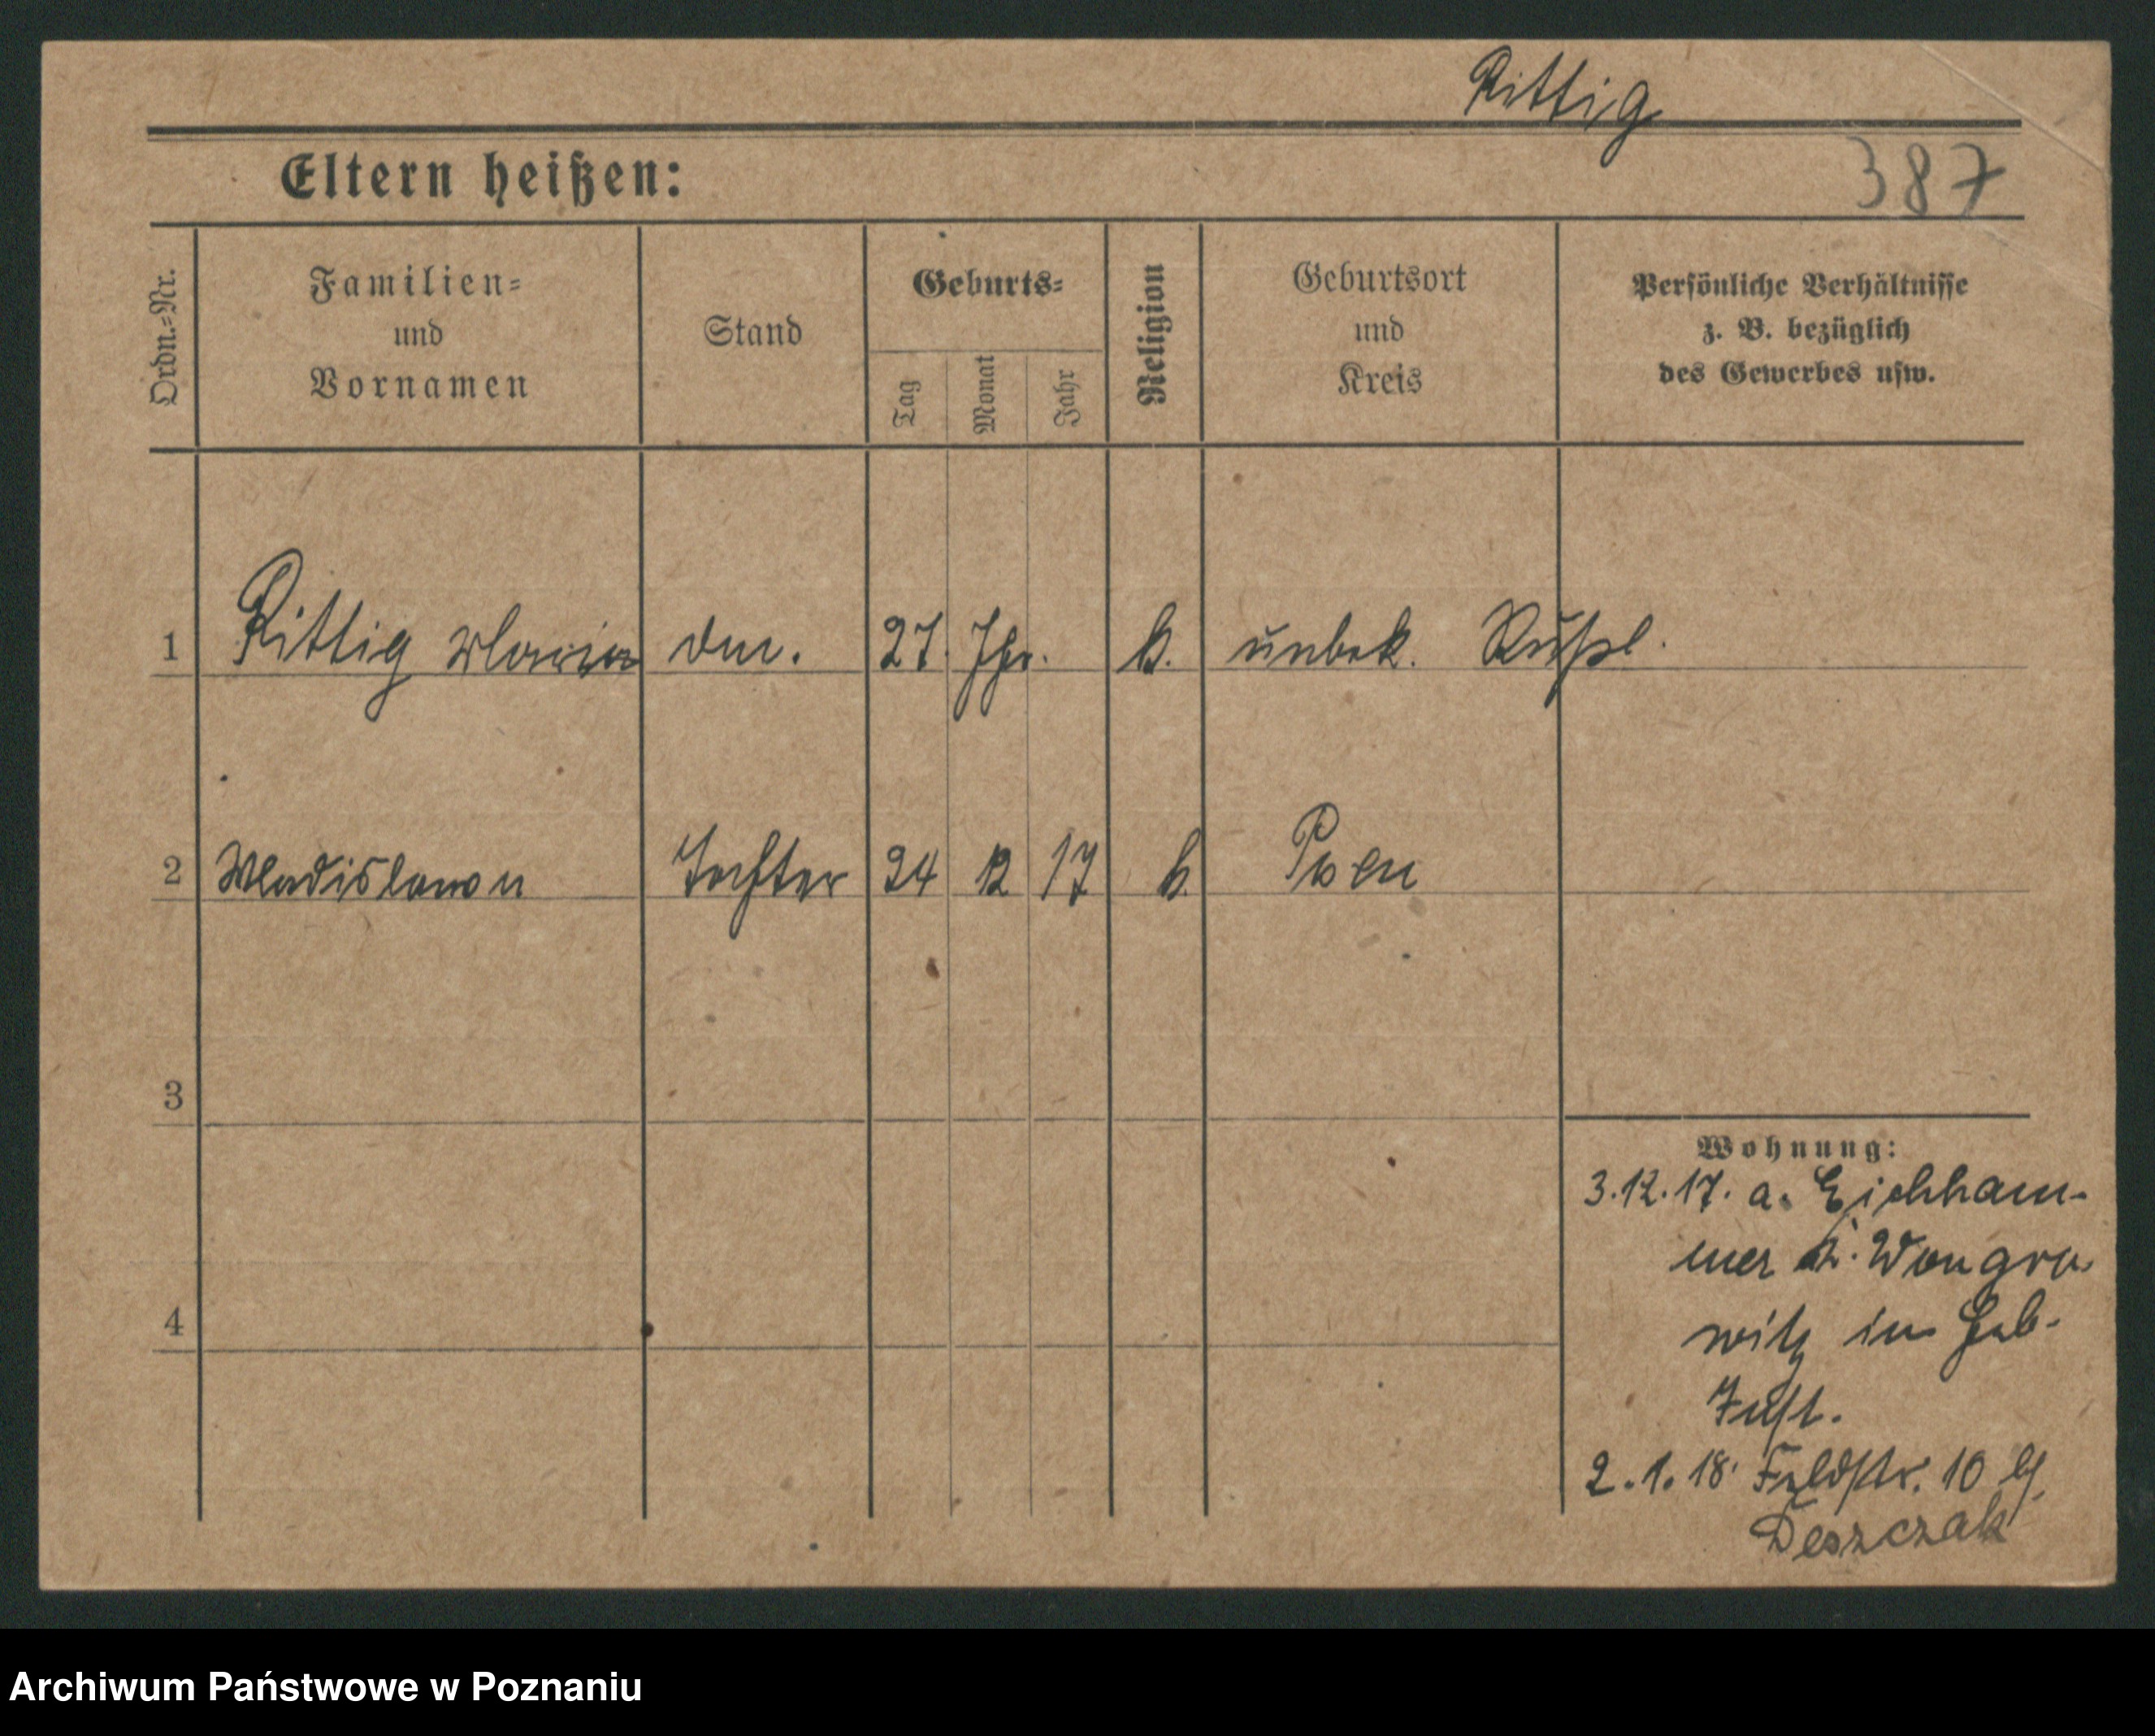 Rittig
Eltern heißen:
387
Ordn.=Nr.
Familien=
und
Vornamen
Stand
Geburts=
Tag
Monat
Jahr
Religion
Geburtsort
und
Kreis
Persönliche Verhältnisse
z. B. bezüglich
des Gewerbes usw.
1 Rittig Maria 27. Jhr. k. unbek. Rußl.
2 Wladislawa Tochter 24 12 17 k. Posen
3
4
Wohnung:
3.12.17. a. Eichham-
mer K. Wongro-
witz in Geb.
2.1.18. Feldstr. 10
Deszczak
Archiwum Państwowe w Poznaniu